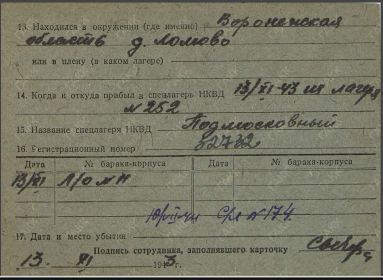 13. Находился в окружении (где именно) Воронежская
область д. Ломово
или в плену (в каком лагере)
14. Когда и откуда прибыл в спецлагерь НКВД 13/XI-43 из лагеря
N 252
15. Название спецлагеря НКВД Подмосковный
16. Регистрационный номер 52732
Дата № барака-корпуса Дата № барака-корпуса
13/XI
N 174
17. Дата и место убытия
Подпись сотрудника, заполнявшего карточку
13. XI 1943 г.